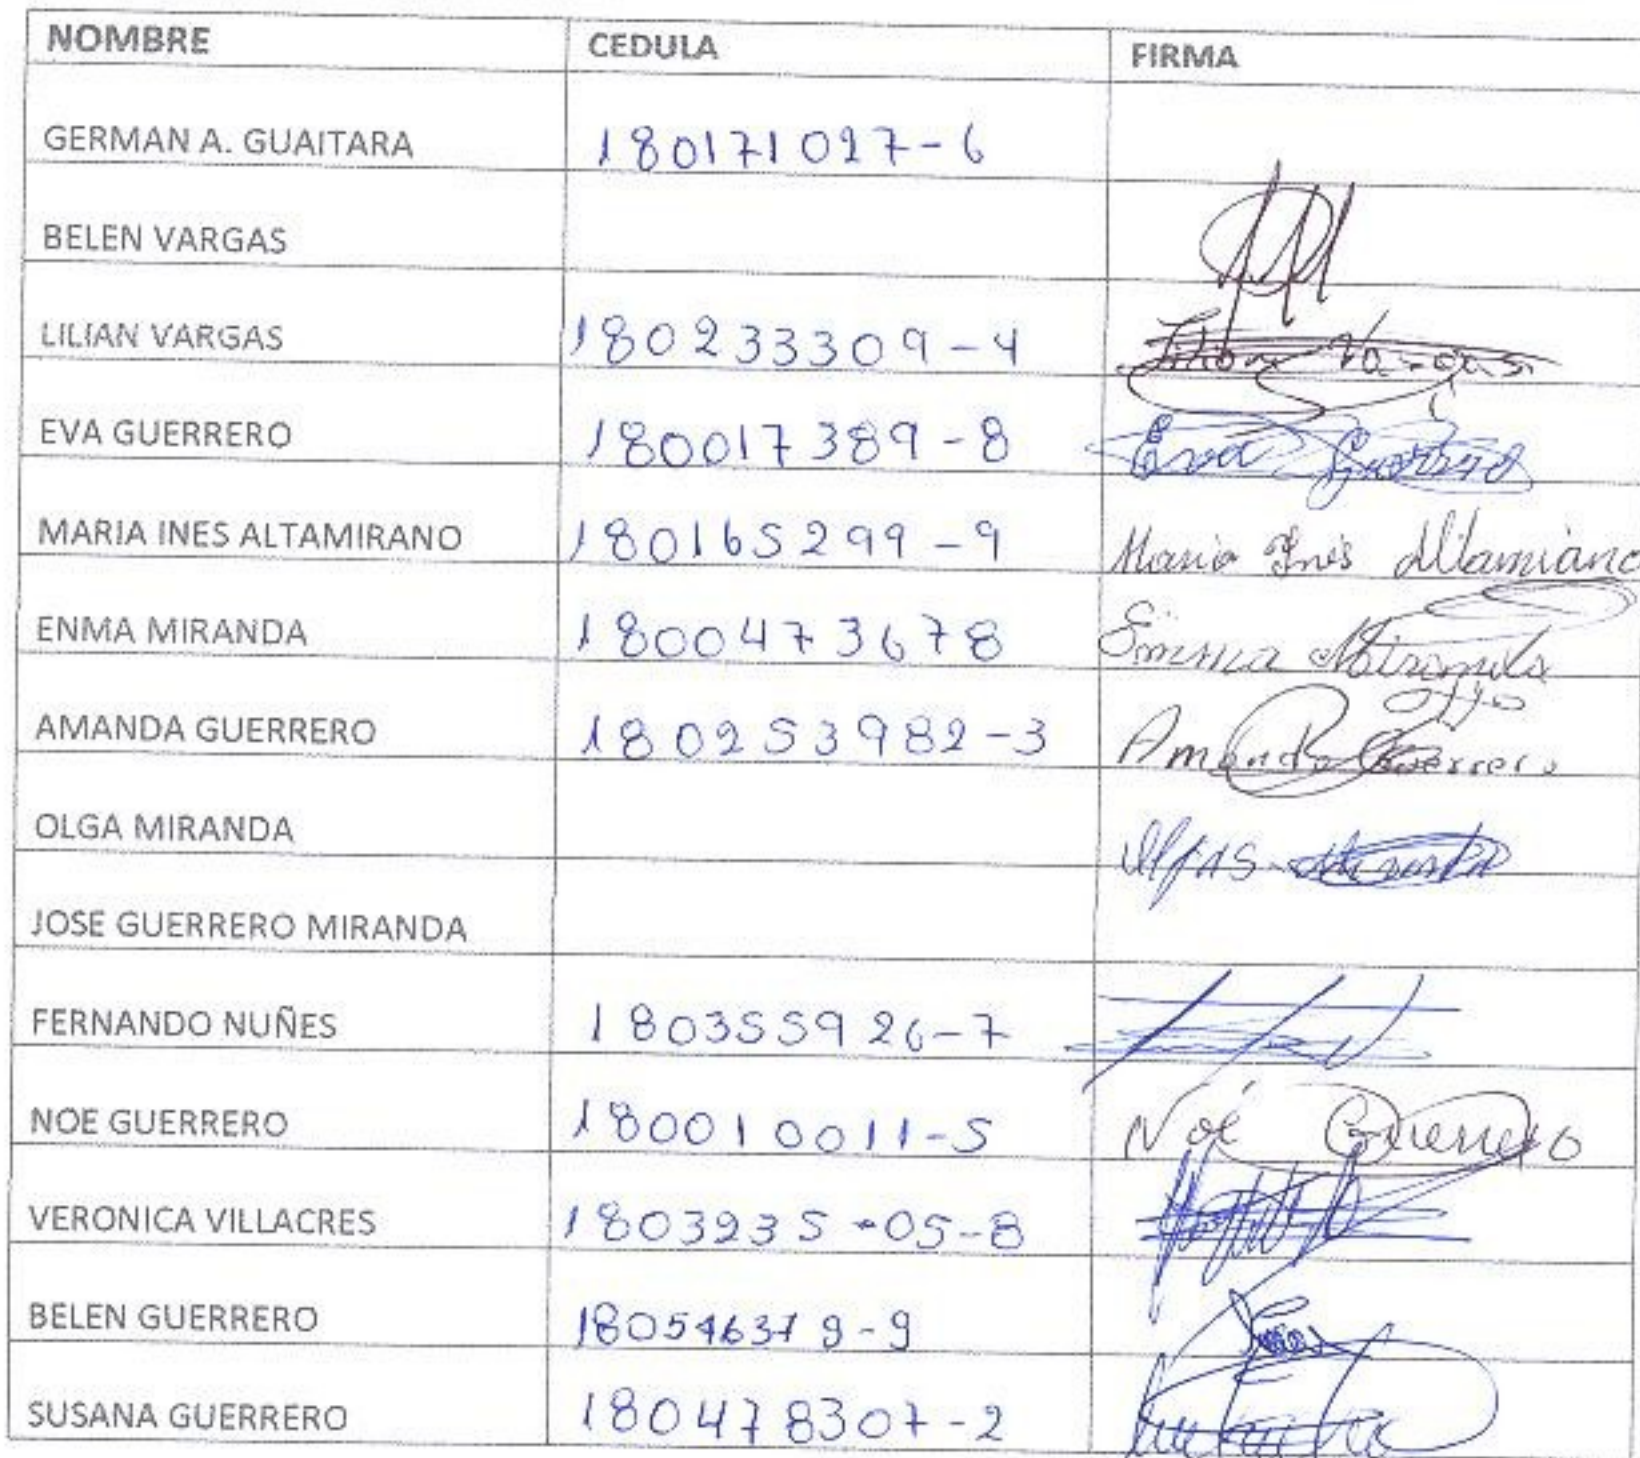 NOMBRE CEDULA FIRMA
GERMAN A. GUAITARA 180171027-6
BELEN VARGAS
LILIAN VARGAS 180233309-4 Vargas
EVA GUERRERO 180017389-8 Eva Guerrero
MARIA INES ALTAMIRANO 180165299-9 Maria Inés Altamirano
ENMA MIRANDA 1800473678 Emma Miranda
AMANDA GUERRERO 180253982-3 Amanda Guerrero
OLGA MIRANDA
JOSE GUERRERO MIRANDA
FERNANDO NUÑES 180355926-7
NOE GUERRERO 180010011-5 Noé Guerrero
VERONICA VILLACRES 1803235-05-8
BELEN GUERRERO
SUSANA GUERRERO 180478307-2